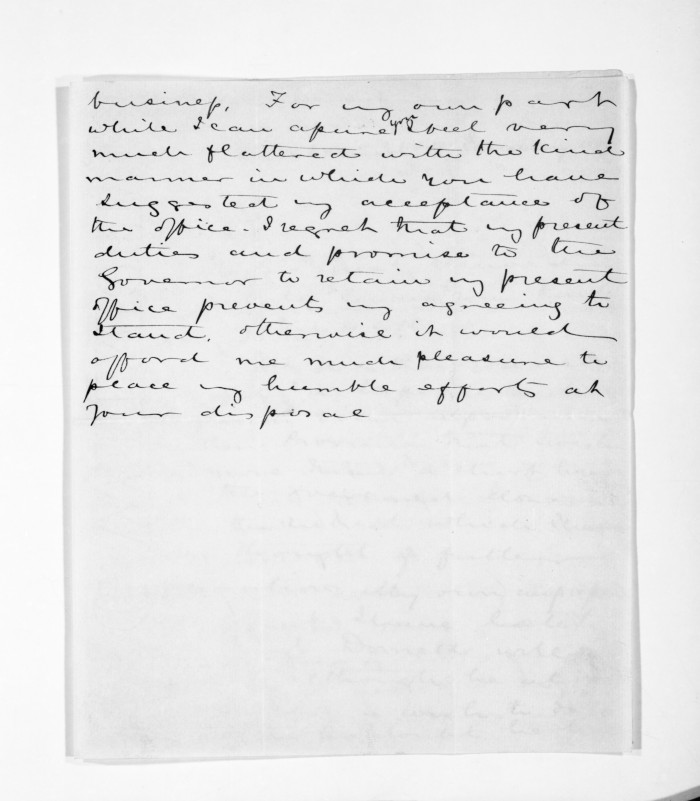 business, For my own part
while I can assure you I feel very
much flattered with the kind
manner in which you have
suggested my acceptance of
the office. I regret that my present
duties and promise to the
Governor to retain my present
office prevents my agreeing to
stand, otherwise it would
afford me much pleasure to
place my humble efforts at
your disposal